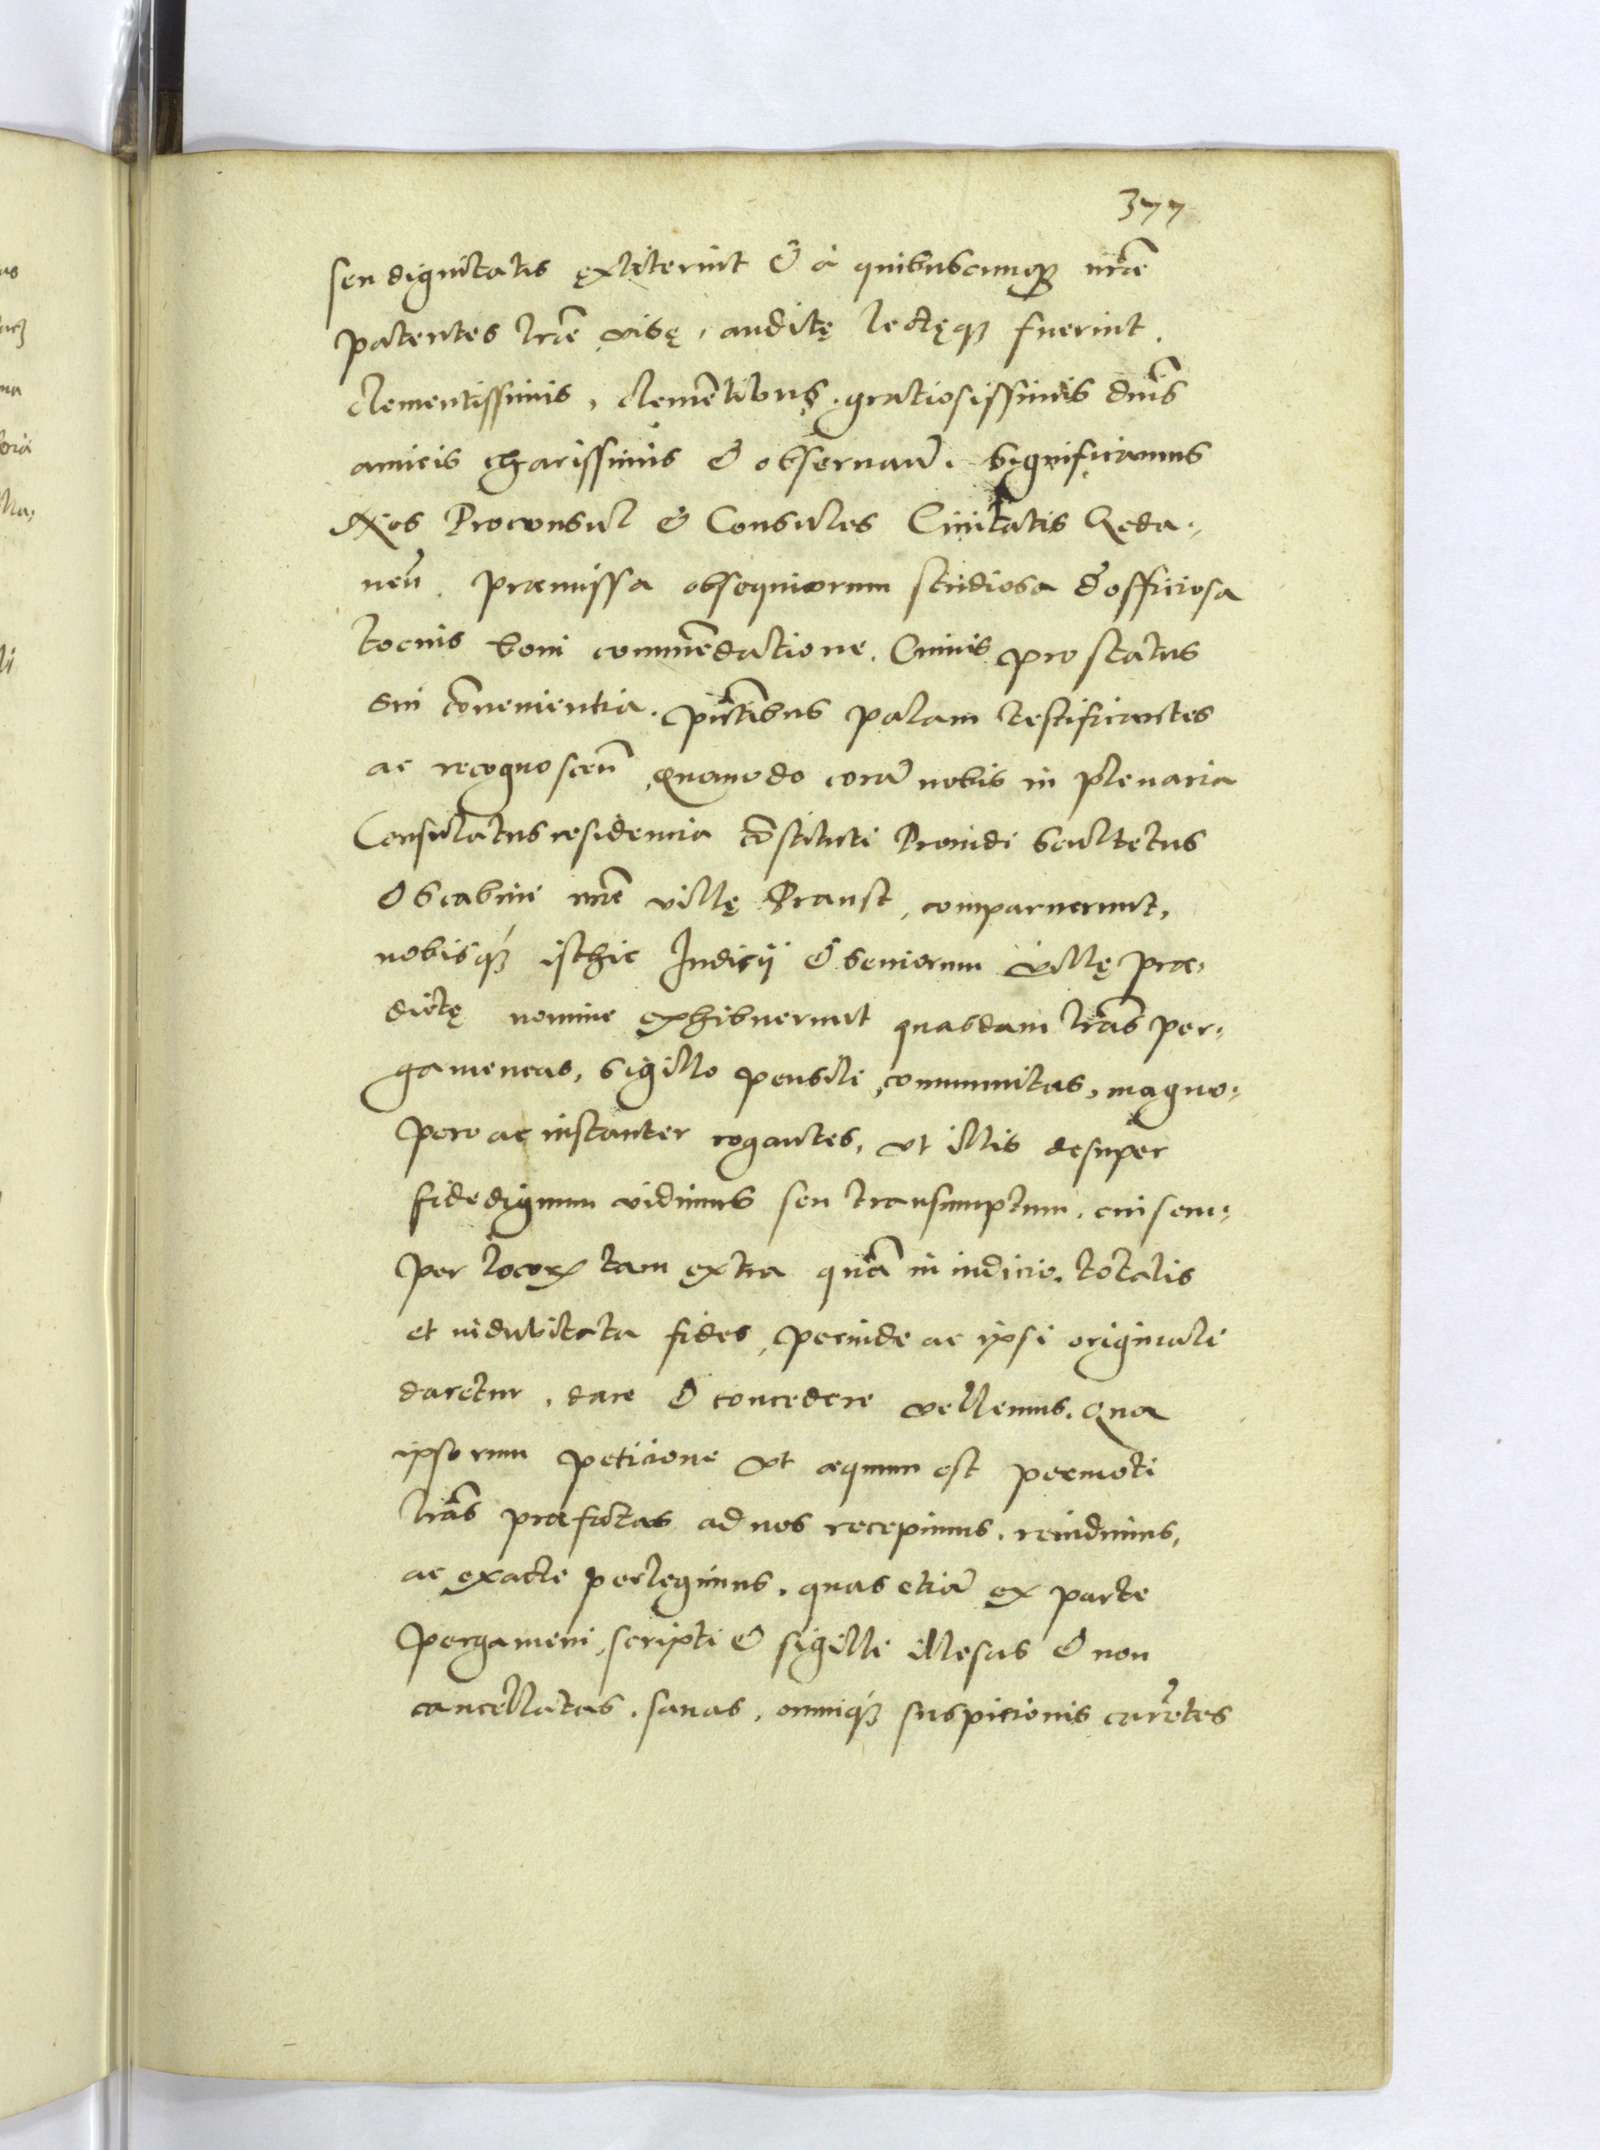 377
seu dignitatis extiterint & à quibuscunq; nr̄e
patentes lr̄e visę, auditę lectęq; fuerint.
Clementissimis, clemētibus, gratiosissimis dn̄is
amicis charissimis & obseruan̄. Significamus
Nos Proconsul & Consules Ciuitatis Geda-
nen̄. Praemissa obsequiorum studiosa & officiosa
tocius boni commēdatione. Cuiuis pro status
sui cōuenientia. pn̄tibus palam testificantes
ac recognoscen̄ Quomodo corā nobis in plenaria
Consulatus residencia cōstituti Prouidi Scultetus
& Scabini nr̄e villę Praust, comparuerunt,
nobisq́; isthic Iudicij & Seniorum villę prae-
dictę nomine exhibuerunt quasdam lr̄as per-
gameneas, sigillo pensili communitas, magno-
pero ac instanter rogantes, vt illis desuper
fidedignum vidimus seu transumptum, cui sem-
per locorꝝ tam extra quā in iudicio, totalis
et indubitata fides, perinde ac ipsi originali
daretur, dare & concedere vellemus. Qua
ipsorum peticione vt aequum est permoti
lr̄as praefatas ad nos recepimus, reuidimus,
ac exacte perlegimus, quas etiā ex parte
pergameni, scripti & sigilli illesas & non
cancellatas, sanas, omniq́; suspicionis carētes